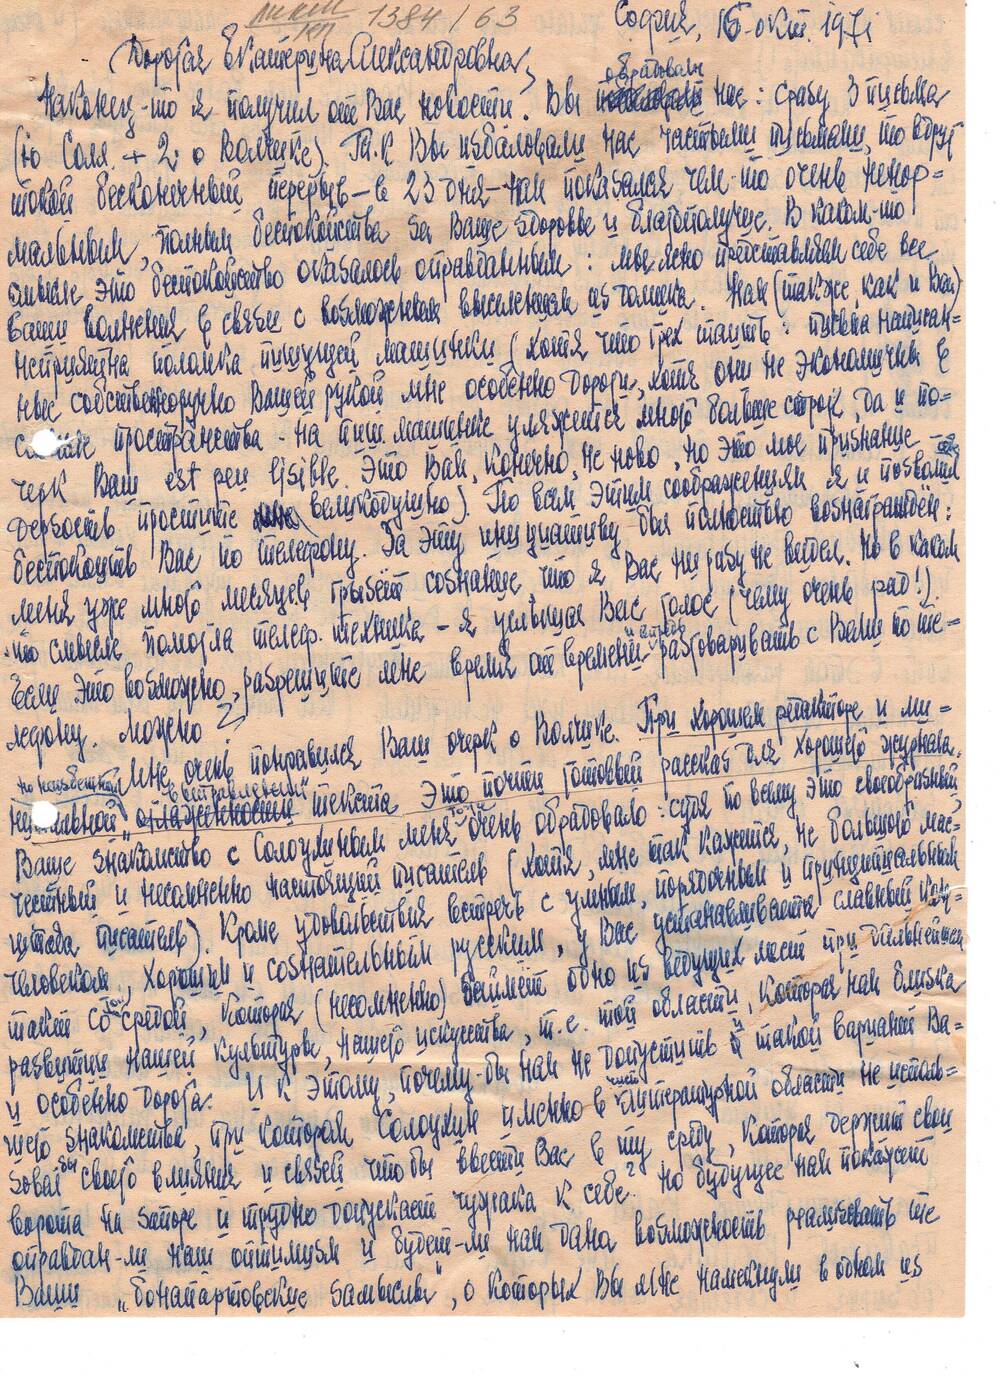 КП 1384/63
София, 15-окт. 1971
Дорогая Екатерина Александровна,
Наконец-то я получил от Вас новости. Вы обрадовали нас: сразу 3 письма
(о Солж. + 2 о Волчике). Т.к. Вы избаловали нас частыми письмами, то вдруг
такой бесконечный перерыв - в 23 дня - нам показался чем-то очень ненор-
мальным, полным беспокойства за Ваше здоровье и благополучие. В каком-то
смысле это беспокойство оказалось оправданным: мы ясно представляем себе все
Ваши волнения в связи с возможным выселением из домика. Нам (также, как и Вам)
неприятна поломка пишущей машинки (хотя что грех таить: письма написан-
ные собственноручно Вашей рукой мне особенно дороги, хотя они не экономичны в
смысле пространства - на пиш. машинке уляжется много больше строк, да и по-
черк Ваш est peu lisible. Это Вам, конечно, не ново, но это мое признание -
дерзость простите великодушно). По всем этим соображениям я и позволил
беспокоить Вас по телефону. За эту инициативу был полностью вознагражден:
меня уже много месяцев грызёт сознание, что я Вас ни разу не видел. Но в каком
то смысле помогла телеф. техника - я услышал Ваш голос (чему очень рад!).
Если это возможно, разрешите мне время от времени и впредь разговаривать с Вами по те-
лефону. Можно?
Мне очень понравился Ваш очерк о Волчике. При хорошем редакторе и ми-
нимальной, но неизбежной "отлаженности" текста это почти готовый рассказ для хорошего журнала.
Ваше знакомство с Солоухиным меня тоже очень обрадовало: судя по всему это своеобразный,
честный и несомненно настоящий писатель (хотя, мне так кажется, не большого мас-
штаба писатель). Кроме удовольствия встреч с умным, порядочным и принципиальным
человеком, хорошим и сознательным русским, у Вас устанавливается славный кон-
такт со той средой, которая (несомненно) займет одно из ведущих мест при дальнейшем
развитии нашей культуры, нашего искусства, т.е. той области, которая нам близка
и особенно дорога. И к этому, почему-бы нам не допустить и такой вариант Ва-
шего знакомства, при котором Солоухин именно в чисто литературной области не исполь-
зовал бы своего влияния и связей что бы ввести Вас в ту среду, которая держит свои
ворота на запоре и трудно допускает чужака к себе? Но будущее нам покажет
оправдан-ли наш оптимизм и будет-ли нам дана возможность реализовать те
Ваши "бонапартовские замыслы", о которых Вы мне намекнули в одном из